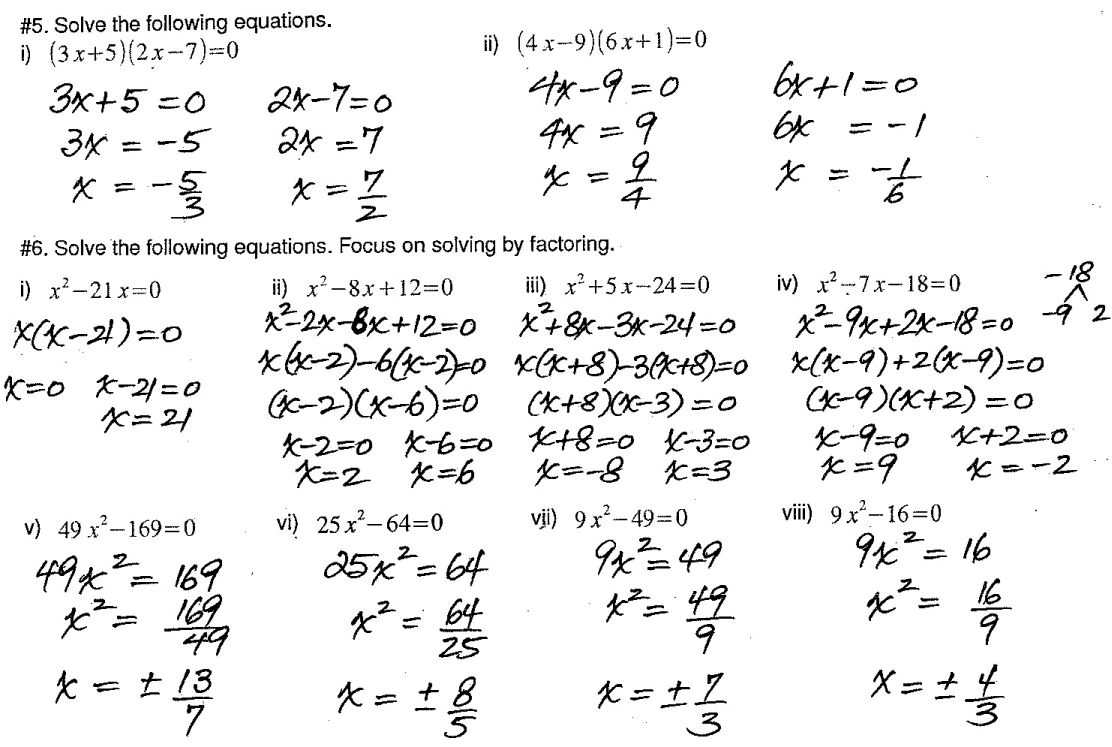 #5. Solve the following equations.
i) (3x+5)(2x−7)=0
3x+5=0 2x−7=0
3x = −5 2x = 7
x = −5/3 x = 7/2
ii) (4x−9)(6x+1)=0
4x−9=0 6x+1=0
4x = 9 6x = −1
x = 9/4 x = −1/6
#6. Solve the following equations. Focus on solving by factoring.
i) x²−21x=0
x(x−21)=0
x=0 x−21=0
x=21
ii) x²−8x+12=0
x²−2x−8x+12=0
x(x−2)−6(x−2)=0
(x−2)(x−6)=0
x−2=0 x−6=0
x=2 x=6
iii) x²+5x−24=0
x²+8x−3x−24=0
x(x+8)−3(x+8)=0
(x+8)(x−3)=0
x+8=0 x−3=0
x=−8 x=3
iv) x²−7x−18=0
−18
−9 2
x²−9x+2x−18=0
x(x−9)+2(x−9)=0
(x−9)(x+2)=0
x−9=0 x+2=0
x=9 x=−2
v) 49x²−169=0
49x²=169
x²=169/49
x=±13/7
vi) 25x²−64=0
25x²=64
x²=64/25
x=±8/5
vii) 9x²−49=0
9x²=49
x²=49/9
x=±7/3
viii) 9x²−16=0
9x²=16
x²=16/9
x=±4/3